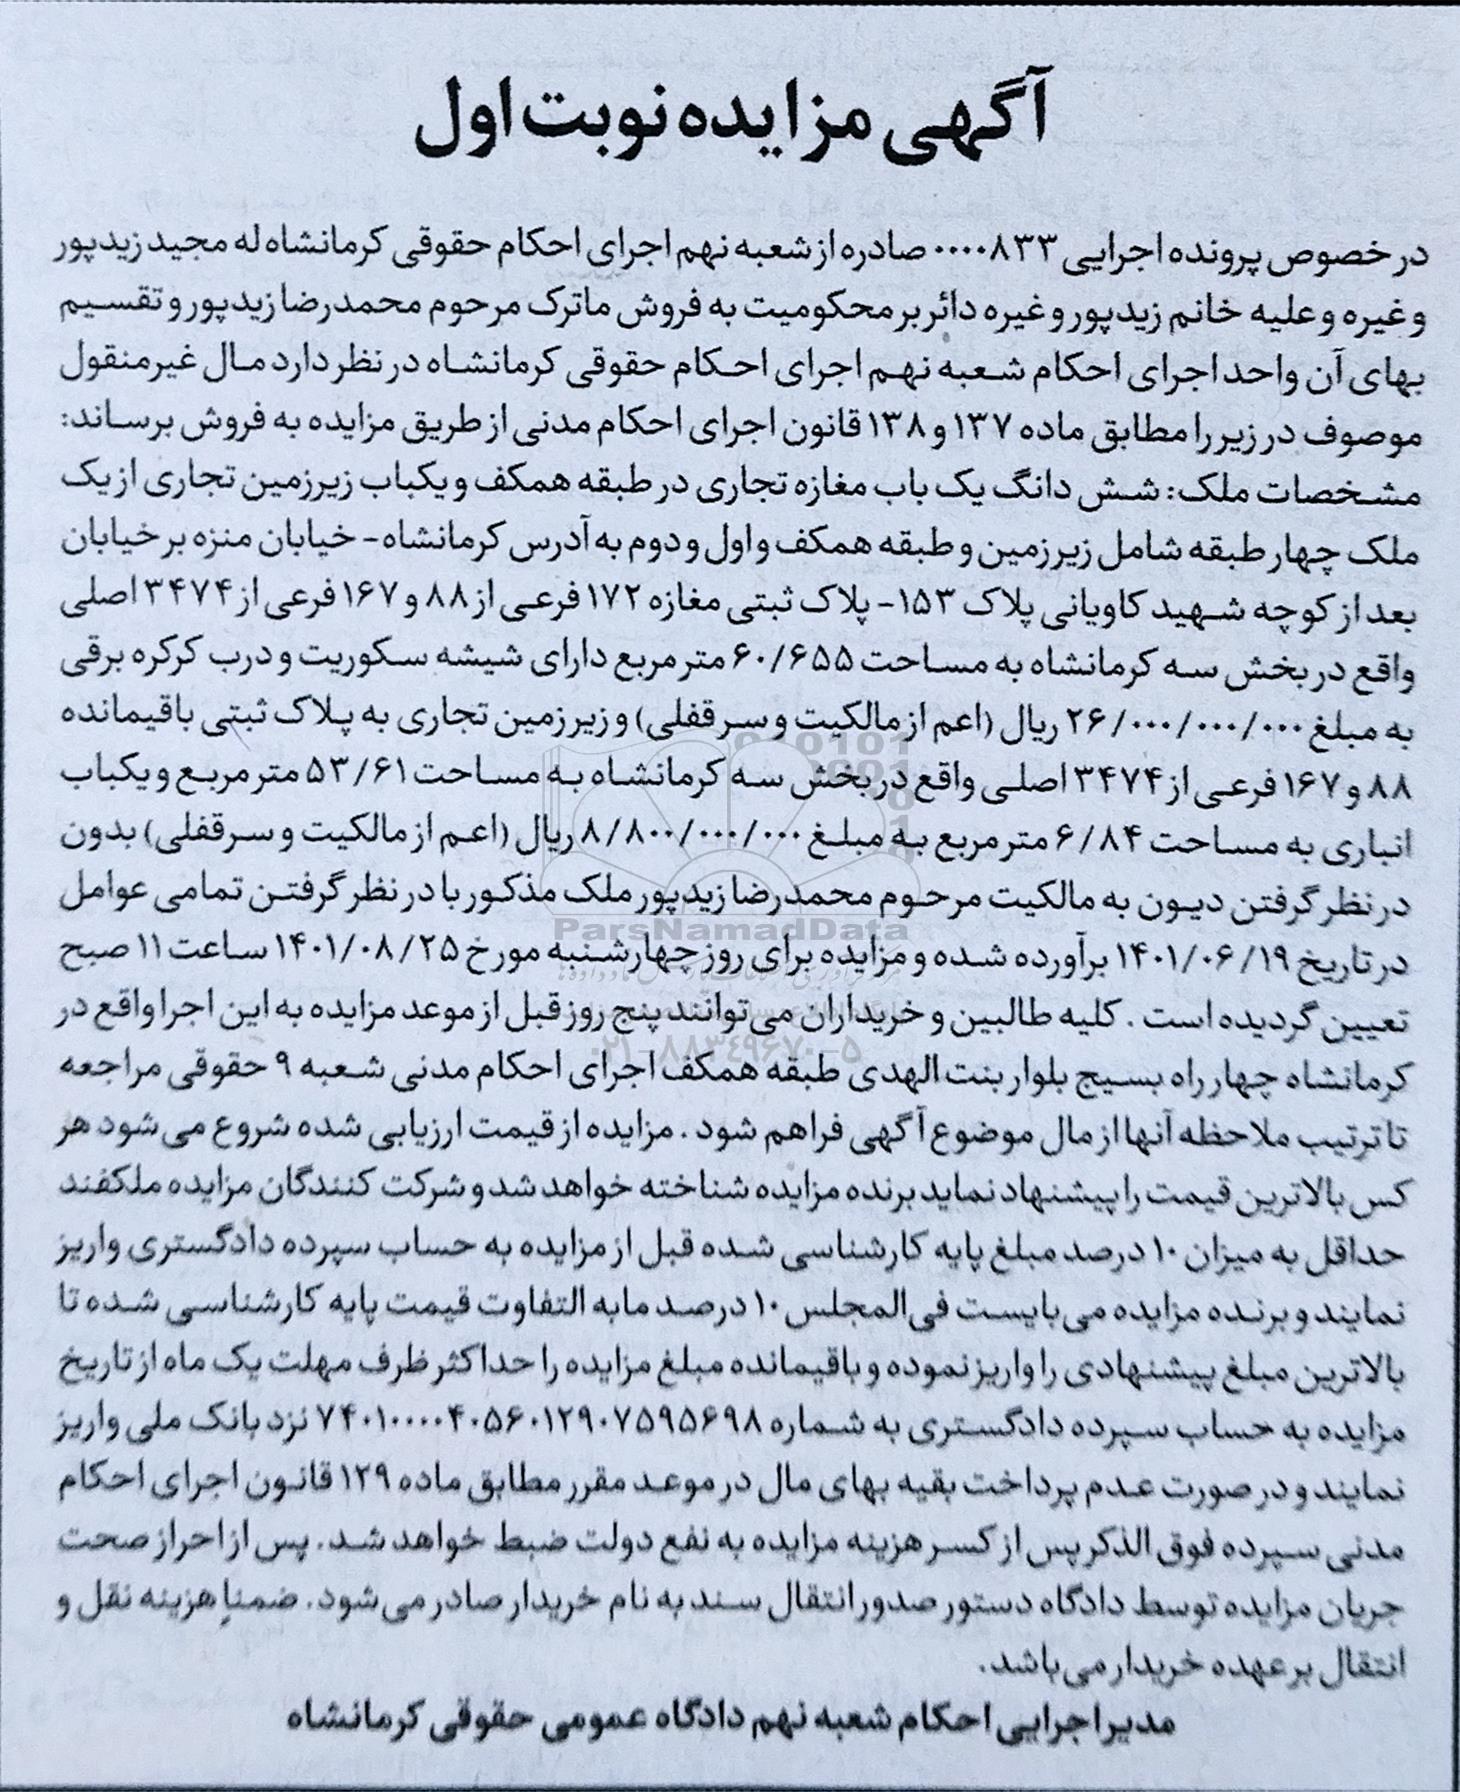 آگهی مزایده نوبت اول
در خصوص پرونده اجرایی ۰۰۰۰۸۳۳ صادره از شعبه نهم اجرای احکام حقوقی کرمانشاه له مجید زیدپور
و غیره و علیه خانم زیدپور و غیره دائر بر محکومیت به فروش ماترک مرحوم محمدرضا زیدپور و تقسیم
بهای آن واحد اجرای احکام شعبه نهم اجرای احکام حقوقی کرمانشاه در نظر دارد مال غیرمنقول
موصوف در زیر را مطابق ماده ۱۳۷ و ۱۳۸ قانون اجرای احکام مدنی از طریق مزایده به فروش برساند:
مشخصات ملک: شش دانگ یک باب مغازه تجاری در طبقه همکف و یکباب زیرزمین تجاری از یک
ملک چهار طبقه شامل زیرزمین و طبقه همکف و اول و دوم به آدرس کرمانشاه- خیابان منزه بر خیابان
بعد از کوچه شهید کاویانی پلاک ۱۵۳- پلاک ثبتی مغازه ۱۷۲ فرعی از ۸۸ و ۱۶۷ فرعی از ۳۴۷۴ اصلی
واقع در بخش سه کرمانشاه به مساحت ۶۰/۶۵۵ متر مربع دارای شیشه سکوریت و درب کرکره برقی
به مبلغ ۲۶/۰۰۰/۰۰۰/۰۰۰ ریال (اعم از مالکیت و سرقفلی) و زیرزمین تجاری به پلاک ثبتی باقیمانده
۸۸ و ۱۶۷ فرعی از ۳۴۷۴ اصلی واقع در بخش سه کرمانشاه به مساحت ۵۳/۶۱ متر مربع و یکباب
انباری به مساحت ۶/۸۴ متر مربع به مبلغ ۸/۸۰۰/۰۰۰/۰۰۰ ریال (اعم از مالکیت و سرقفلی) بدون
در نظر گرفتن دیون به مالکیت مرحوم محمدرضا زیدپور ملک مذکور با در نظر گرفتن تمامی عوامل
ParsNamadData
در تاریخ ۱۴۰۱/۰۶/۱۹ برآورده شده و مزایده برای روز چهارشنبه مورخ ۱۴۰۱/۰۸/۲۵ ساعت ۱۱ صبح
تعیین گردیده است . کلیه طالبین و خریداران می‌توانند پنج روز قبل از موعد مزایده به این اجرا واقع در
۰۲۱-۸۸۳۴۹۶۷۰-۵
کرمانشاه چهار راه بسیج بلوار بنت الهدی طبقه همکف اجرای احکام مدنی شعبه ۹ حقوقی مراجعه
تا ترتیب ملاحظه آنها از مال موضوع آگهی فراهم شود . مزایده از قیمت ارزیابی شده شروع می‌شود هر
کس بالاترین قیمت را پیشنهاد نماید برنده مزایده شناخته خواهد شد و شرکت کنندگان مزایده ملکفند
حداقل به میزان ۱۰ درصد مبلغ پایه کارشناسی شده قبل از مزایده به حساب سپرده دادگستری واریز
نمایند و برنده مزایده می‌بایست فی‌المجلس ۱۰ درصد مابه التفاوت قیمت پایه کارشناسی شده تا
بالاترین مبلغ پیشنهادی را واریز نموده و باقیمانده مبلغ مزایده را حداکثر ظرف مهلت یک ماه از تاریخ
مزایده به حساب سپرده دادگستری به شماره ۷۴۰۱۰۰۰۰۴۰۵۶۰۱۲۹۰۷۵۹۵۶۹۸ نزد بانک ملی واریز
نمایند و در صورت عدم پرداخت بقیه بهای مال در موعد مقرر مطابق ماده ۱۲۹ قانون اجرای احکام
مدنی سپرده فوق الذکر پس از کسر هزینه مزایده به نفع دولت ضبط خواهد شد. پس از احراز صحت
جریان مزایده توسط دادگاه دستور صدور انتقال سند به نام خریدار صادر می‌شود. ضمنا هزینه نقل و
انتقال بر عهده خریدار می‌باشد.
مدیر اجرایی احکام شعبه نهم دادگاه عمومی حقوقی کرمانشاه